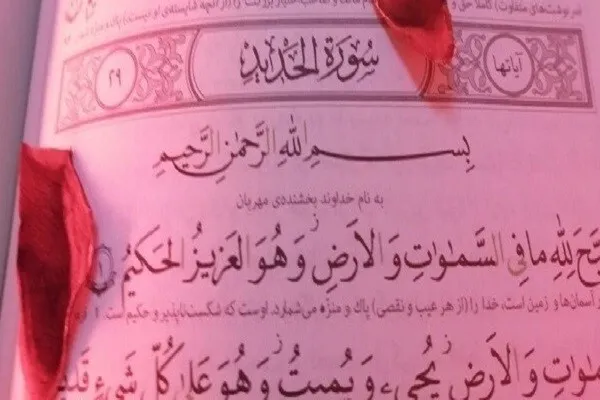 سرنوشت‌های متفاوت) کاملاً حق و
آیاتها سورة الحديد ٢٩
بِسْمِ اللهِ الرَّحْمٰنِ الرَّحِيمِ
به نام خداوند بخشنده‌ی مهربان
سَبَّحَ لِلّٰهِ مَا فِي السَّمٰوَاتِ وَالْاَرْضِ وَهُوَ الْعَزِيزُ الْحَكِيمُ ١
و آسمان‌ها و زمین است، خدا را (از هر عیب و نقصی) پاک و منزّه می‌شمارد. اوست که شکست‌ناپذیر و حکیم است. ۱
مٰوَاتِ وَالْاَرْضِ يُحْيِي وَيُمِيتُ وَهُوَ عَلٰى كُلِّ شَيْءٍ قَدِ